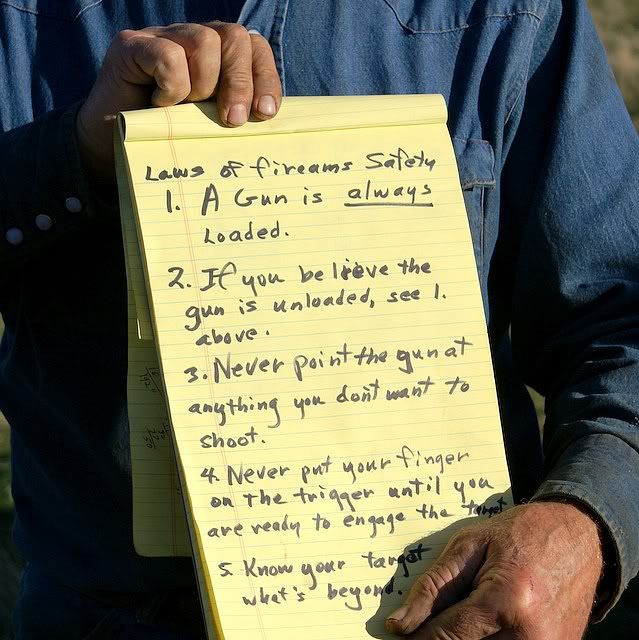 Laws of fireams Safety
1. A Gun is always
Loaded.
2. If you believe the
gun is unloaded, see 1.
above.
3. Never point the gun at
anything you don't want to
shoot.
4. Never put your finger
on the trigger until you
are ready to engage the target
5. Know your target
what's beyond.